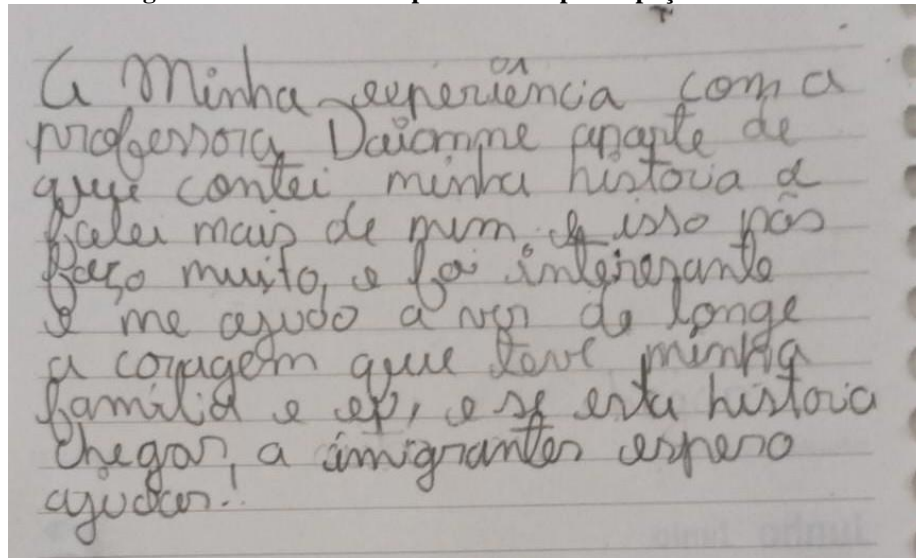 A Minha experiência com a
professora Daianne aparte de
que contei minha historia e
falei mais de mim e isso não
faço muito, e foi interesante
e me ajudo a ver de longe
a coragem que teve minha
família e eu, e se esta historia
chegar, a imigrantes espero
ajudar!